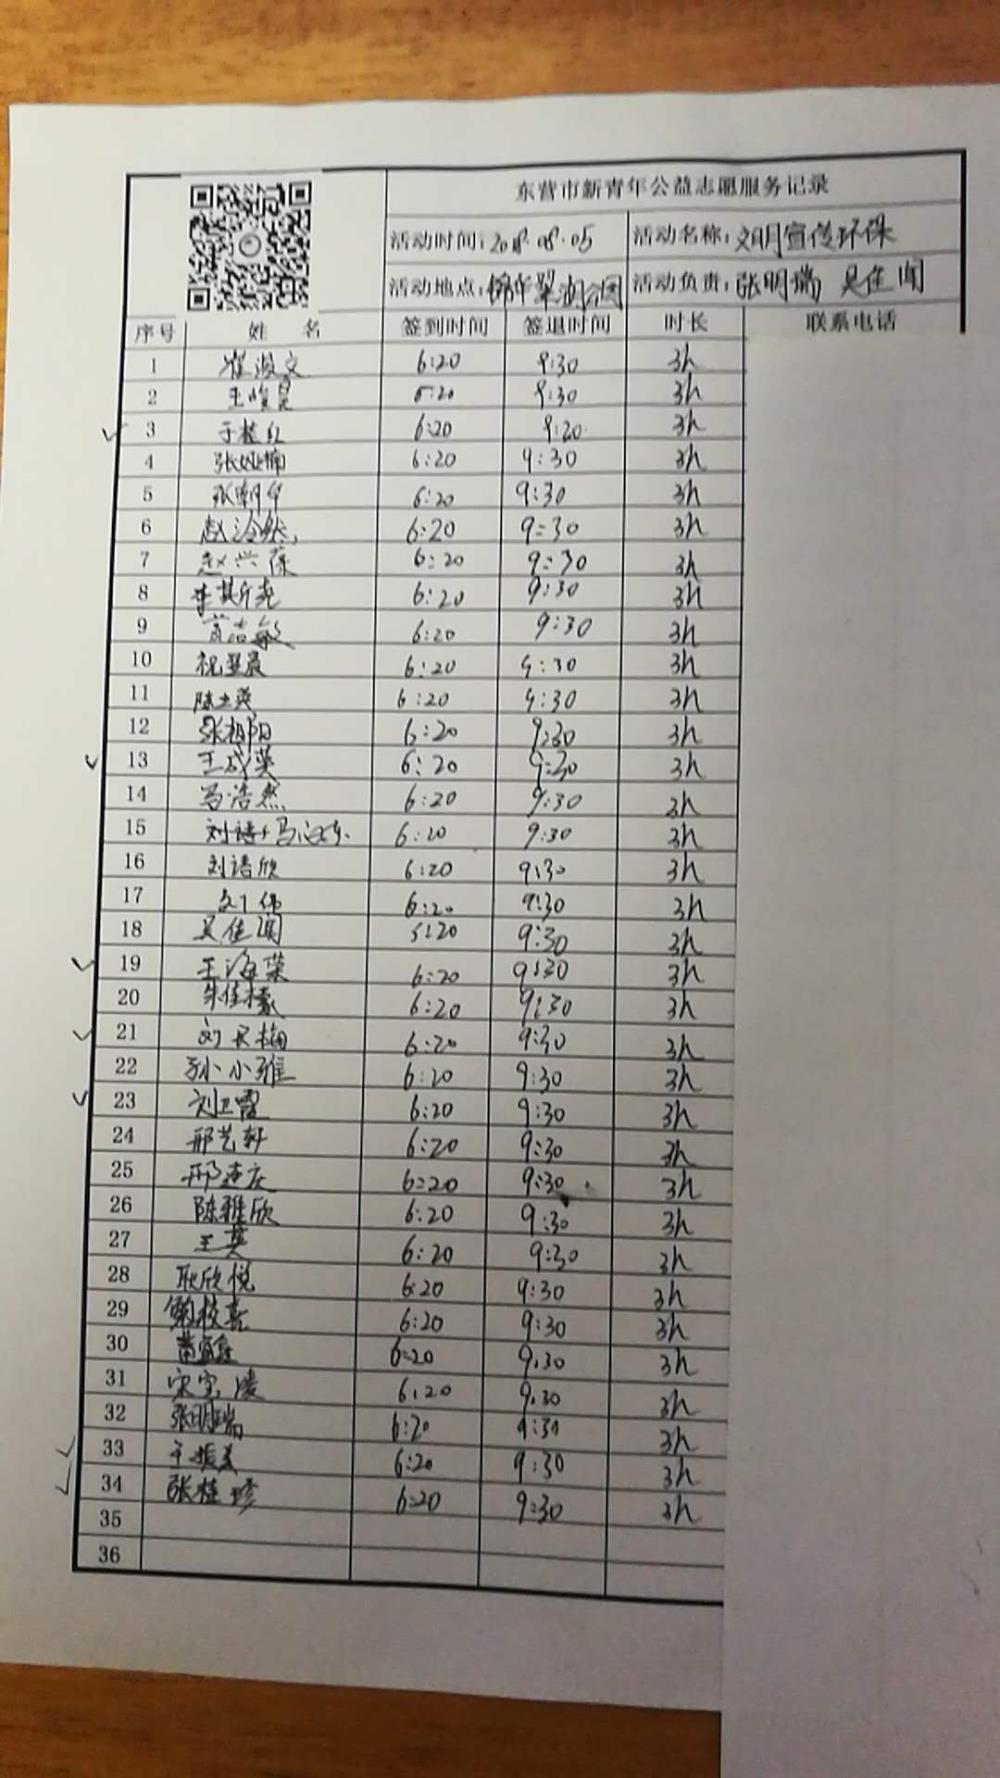 东营市新青年公益志愿服务记录
活动时间：2018.08.05 活动名称：文明宣传环保
活动地点：锦华翠湖 活动负责：张明瑞 吴佳闻
序号 姓名 签到时间 签退时间 时长 联系电话
1 崔淑文 6:20 9:30 3h
2 王俊昊 6:20 9:30 3h
3 于桂红 6:20 9:20 3h
4 张娅楠 6:20 9:30 3h
5 张朝华 6:20 9:30 3h
6 赵泠然 6:20 9:30 3h
7 赵兴葆 6:20 9:30 3h
8 李其斤尧 6:20 9:30 3h
9 6:20 9:30 3h
10 祝显晨 6:20 9:30 3h
11 陈立英 6:20 9:30 3h
12 张旭阳 6:20 9:30 3h
13 王成英 6:20 9:30 3h
14 马浩然 6:20 9:30 3h
15 6:20 9:30 3h
16 刘语欣 6:20 9:30 3h
17 刘伟 6:20 9:30 3h
18 吴佳闻 5:20 9:30 3h
19 王海荣 6:20 9:30 3h
20 朱佳 6:20 9:30 3h
21 刘天梅 6:20 9:30 3h
22 孙小雅 6:20 9:30 3h
23 刘卫霞 6:20 9:30 3h
24 邢艺轩 6:20 9:30 3h
25 邢 6:20 9:30 3h
26 陈雅欣 6:20 9:30 3h
27 王英 6:20 9:30 3h
28 耿欣悦 6:20 9:30 3h
29 6:20 9:30 3h
30 6:20 9:30 3h
31 宋宝凌 6:20 9:30 3h
32 张明瑞 6:20 9:30 3h
33 于振美 6:20 9:30 3h
34 张桂珍 6:20 9:30 3h
35
36